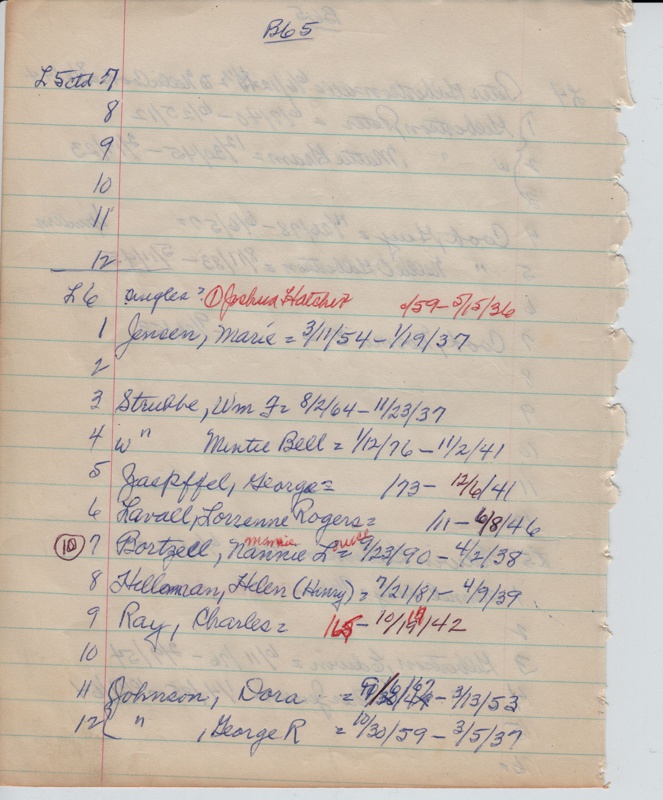 B65
L5ctd 7
8
9
10
11
12
L6 singles? ① Joshua Hatcher /59 - 5/15/36
1 Jensen, Marie = 3/11/54 - 1/19/37
2
3 Strubbe, Wm F = 8/2/64 - 11/23/37
4 w " Mintie Bell = 1/12/76 - 11/2/41
5 George = /73 - 12/6/41
6 Lavall, Lorrenne Rogers = /11 - 6/8/46
7 Bortzell, Nannie L = /23/90 - 4/2/38
8 Helen (Henry) = 7/21/81 - 4/9/39
9 Ray, Charles = - 10/19/42
10
11 Johnson, Dora = - 3/13/53
12 " , George R = 10/30/59 - 3/5/37